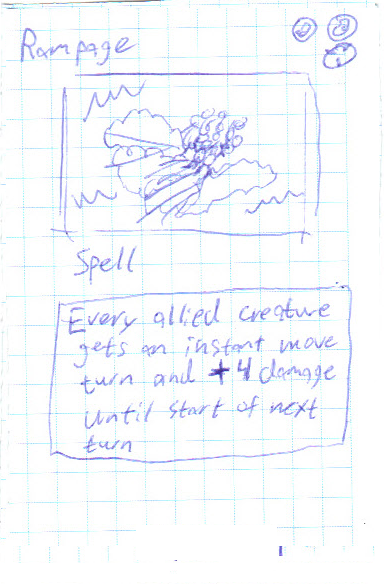 Rampage
Spell
Every allied creature
gets an instant move
turn and +4 damage
Until start of next
turn